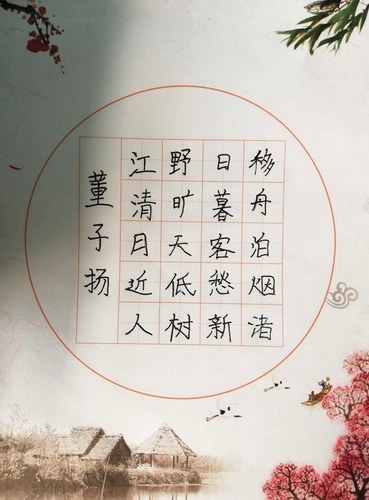 移舟泊烟渚
日暮客愁新
野旷天低树
江清月近人
董子扬